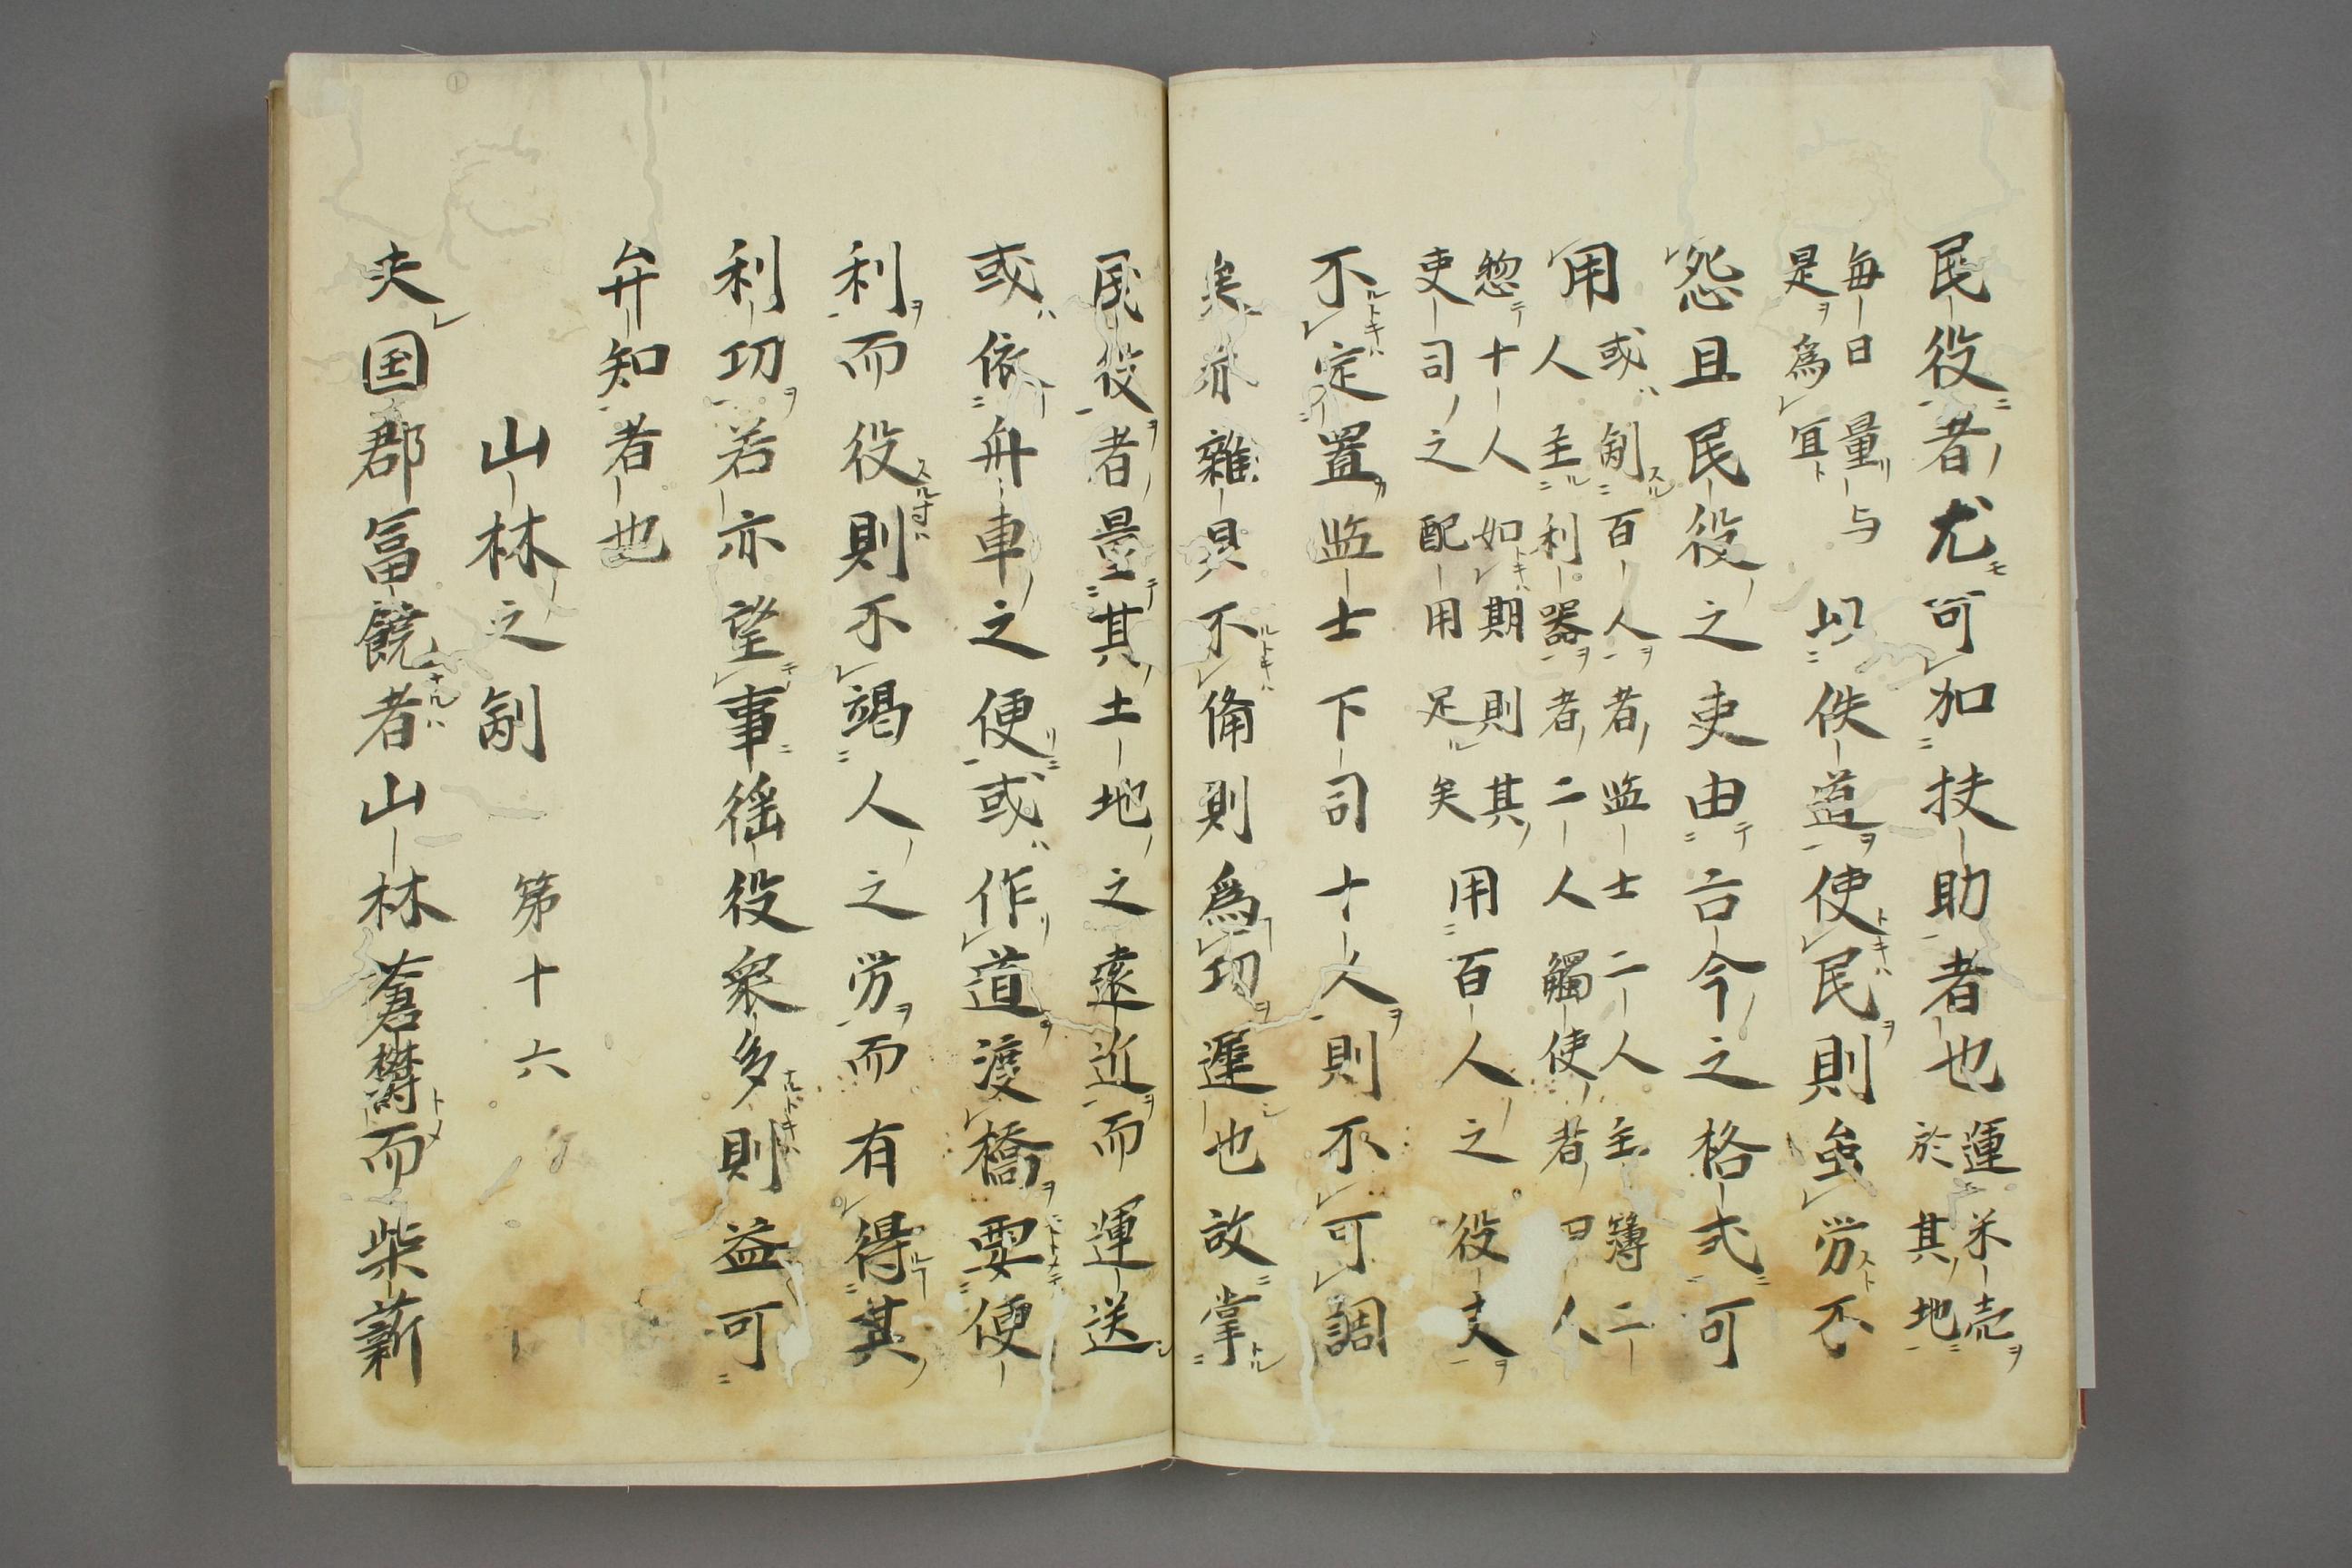 民役者尤可加扶助者也 運米売於其地
毎日量与是為宜 以佚道使民則虽労不
怨且民役之吏由古今之格式可
用 或制百人者监士二人主簿二人主利器者二人觸使者四人
惣十人如期則其吏司之配用足矣 用百人之役夫
不定置监士下司十人則不可調
矣亦雜具不俻則為功遲也故掌
民役者量其土地之遠近而運送
或依舟車之便或作道渡橋要便
利而役則不竭人之労而有得其
利功若亦望事徭役衆多則益可
弁知者也
山林之制 第十六
夫国郡冨饒者山林蒼欝而柴薪